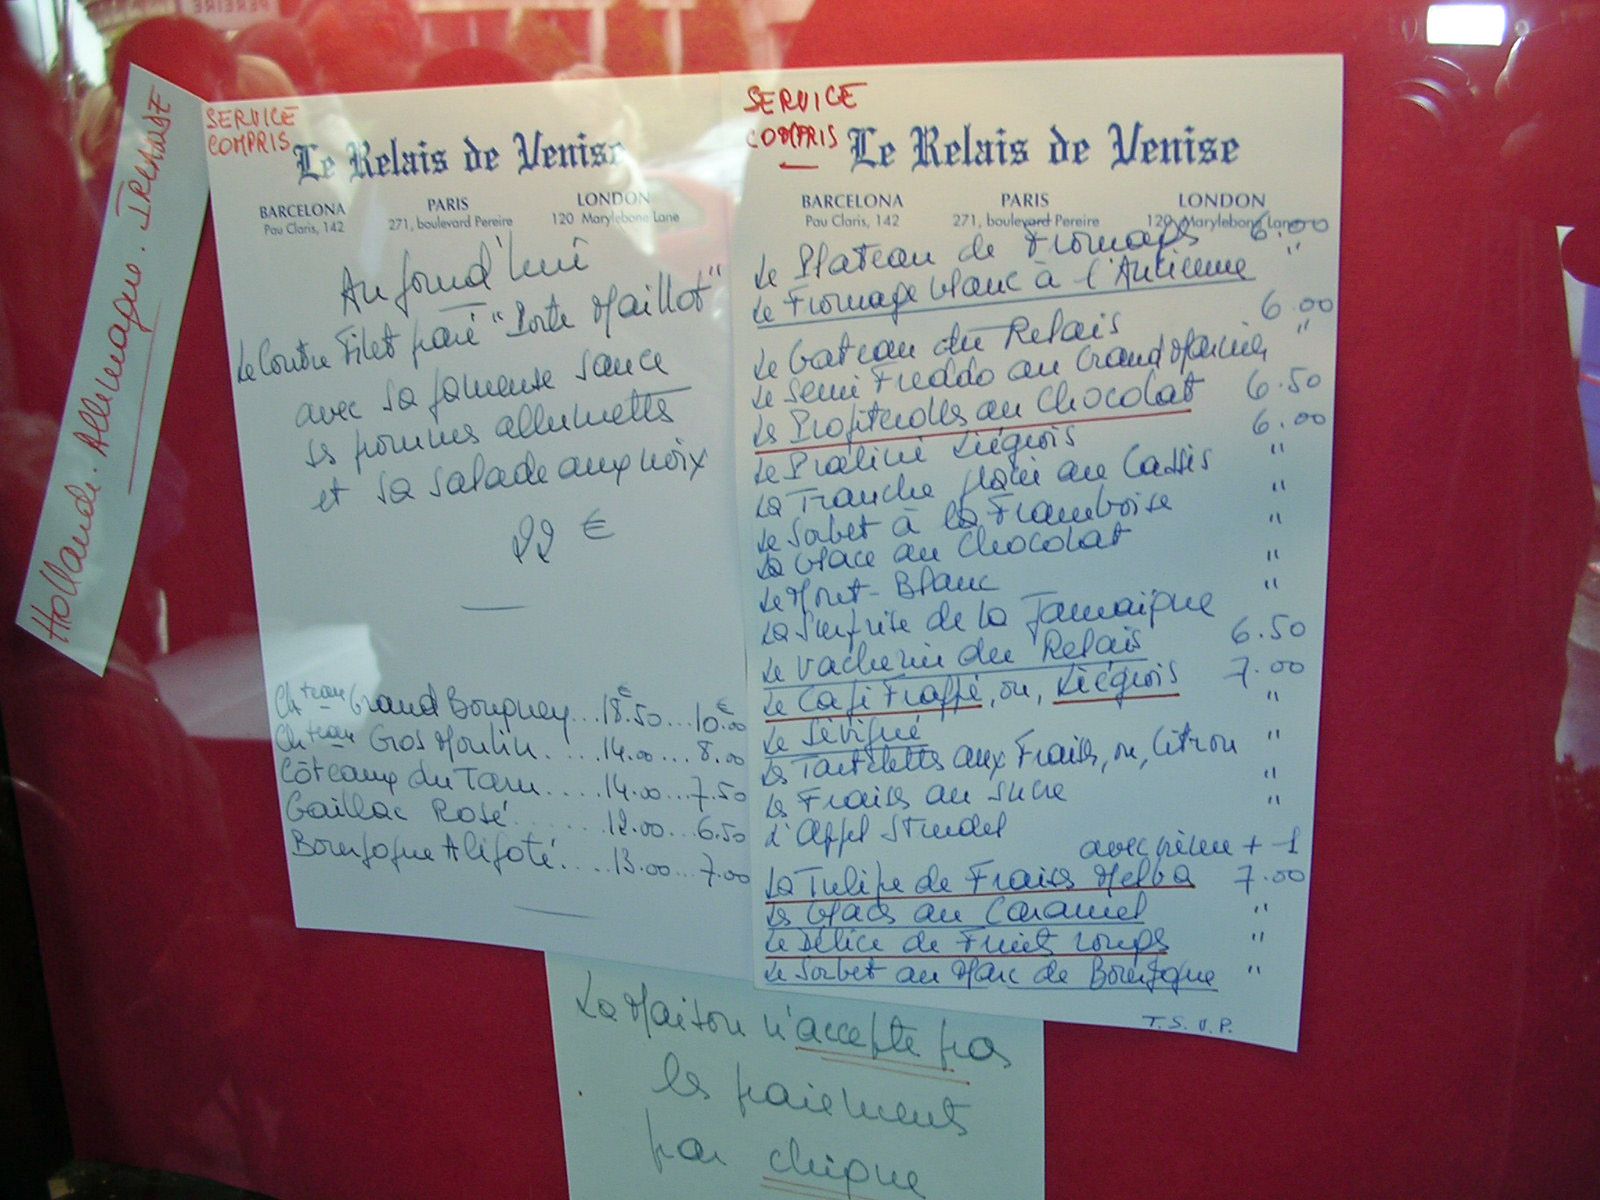 Hollande. Allemagne. IRLANDE
SERVICE
COMPRIS
Le Relais de Venise
BARCELONA PARIS LONDON
Pau Claris, 142 271, boulevard Pereire 120 Marylebone Lane
Aujourd'hui
Le Contre Filet paré "Porte Maillot"
avec sa fameuse sauce
les pommes allumettes
et sa salade aux noix
22 €
Chteau Grand Bouquey...18.50€...10.00€
Chteau Gros Moulin....14.00...8.00
Côteaux du Tarn....14.00...7.50
Gaillac Rosé.......12.00...6.50
Bourgogne Aligoté....13.00...7.00
SERVICE
COMPRIS
Le Relais de Venise
BARCELONA PARIS LONDON
Pau Claris, 142 271, boulevard Pereire 120 Marylebone Lane
Le Plateau de Fromages 6.00
Le Fromage blanc à l'Ancienne "
Le Gateau du Relais 6.00
Le Semi Freddo au Grand Marnier "
Les Profiteroles au Chocolat 6.50
Le Praliné Liégois 6.00
La Tranche glacée au Cassis "
Le Sorbet à la Framboise "
La Glace au Chocolat "
Le Mont-Blanc "
La Surprise de la Jamaïque "
Le Vacherin du Relais 6.50
Le Café Frappé, ou, Liégois 7.00
Le Sévigné "
Les Tartelettes aux Fraises, ou, Citron "
Les Fraises au sucre "
L'Appel Strudel "
avec crème + 1
La Tulipe de Fraises Melba 7.00
Les Glaces au Caramel "
Le Délice de Fruits rouges "
Le Sorbet au Marc de Bourgogne "
T.S.V.P.
La Maison n'accepte pas
les paiements
par chèque